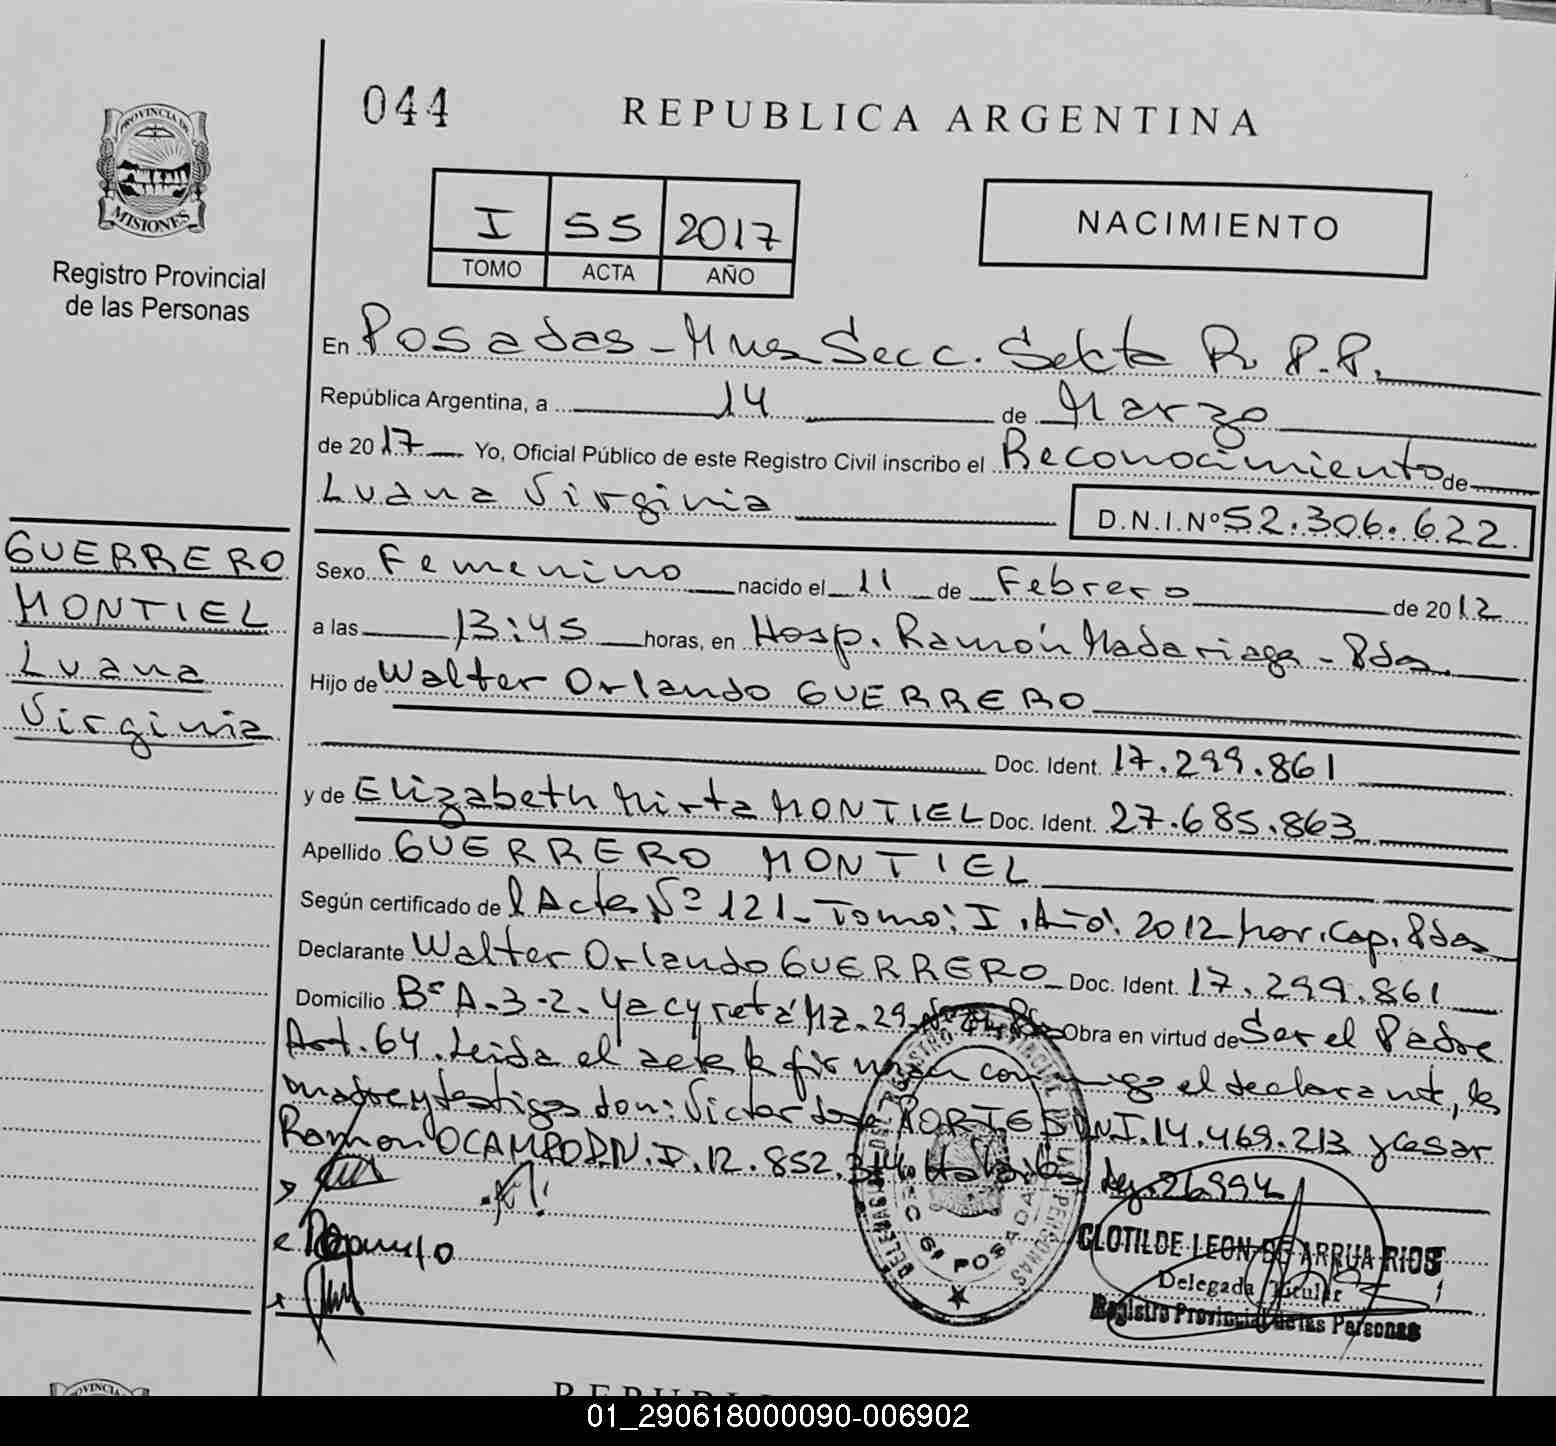 PROVINCIA DE
MISIONES
Registro Provincial
de las Personas
GUERRERO
MONTIEL
Luana
Virginia
044 REPUBLICA ARGENTINA
I 55 2017
TOMO ACTA AÑO
NACIMIENTO
En Posadas - Mnes Secc. Sexta R. P. P.
República Argentina, a 14 de Marzo
de 2017 Yo, Oficial Público de este Registro Civil inscribo el Reconocimiento de
Luana Virginia D.N.I.Nº 52.306.622
Sexo Femenino nacido el 11 de Febrero de 2012
a las 13:45 horas, en Hosp. Ramón Madariaga - Pdas
Hijo de Walter Orlando GUERRERO
Doc. Ident. 17.299.861
y de Elizabeth Mirta MONTIEL Doc. Ident. 27.685.863
Apellido GUERRERO MONTIEL
Según certificado de l Acta Nº 121 - Tomo: I . Año: 2012 Cap. Pdas
Declarante Walter Orlando GUERRERO Doc. Ident. 17.299.861
Domicilio Bº A-3-2. Yacyretá Mz. 29 Obra en virtud de Ser el Padre
Art. 64. Leída el acta la firman conmigo el declarante, la
madre y testigos don: Victor José PORTES DNI. 14.469.213 y Cesar
Ramon OCAMPO D.N.I. 12.852. Ley. 26994
CLOTILDE LEON DE ARRUA RIOS
Delegada Titular
Registro Provincial de las Personas
SECC 6ª POSADAS
01_290618000090-006902